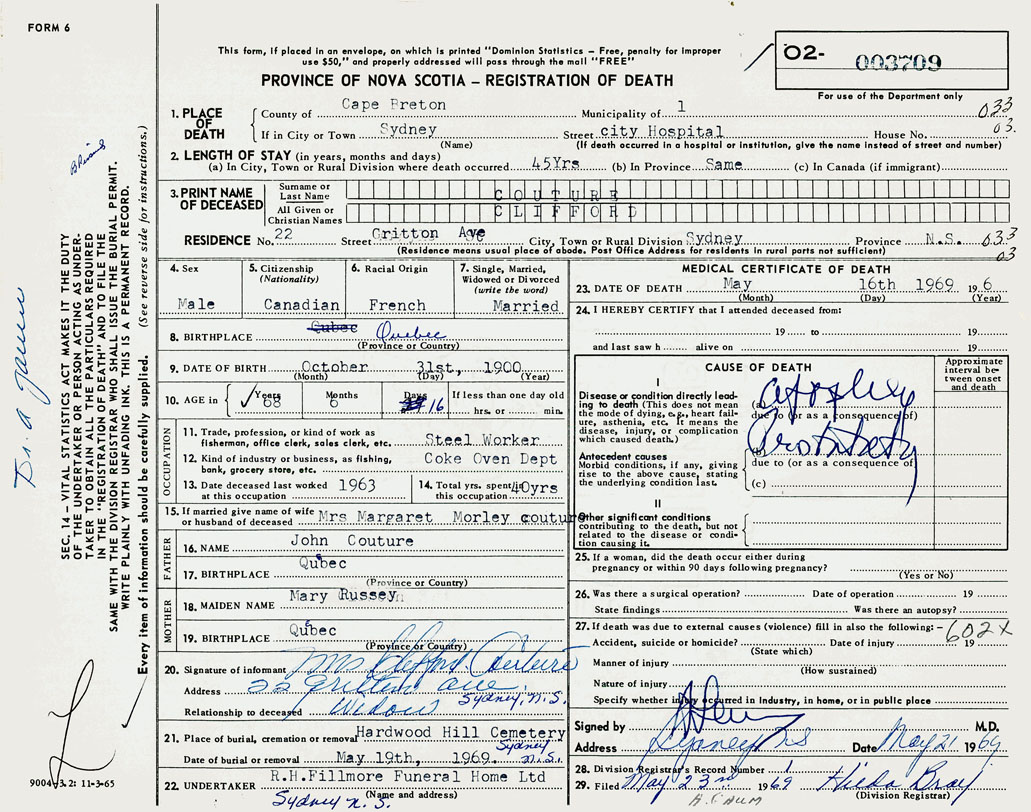 FORM 6
This form, if placed in an envelope, on which is printed "Dominion Statistics – Free, penalty for improper
use $50," and properly addressed will pass through the mail "FREE"
PROVINCE OF NOVA SCOTIA – REGISTRATION OF DEATH
02- 003709
For use of the Department only
1. PLACE OF DEATH
County of Cape Breton Municipality of 1 033
If in City or Town Sydney Street city Hospital House No. 03.
(Name) (If death occurred in a hospital or institution, give the name instead of street and number)
2. LENGTH OF STAY (in years, months and days)
(a) In City, Town or Rural Division where death occurred 45Yrs (b) In Province Same (c) In Canada (if immigrant)
3. PRINT NAME OF DECEASED
Surname or Last Name COUTURE
All Given or Christian Names CLIFFORD
RESIDENCE No. 22 Street Gritton Ave City, Town or Rural Division Sydney Province N.S. 033
(Residence means usual place of abode. Post Office Address for residents in rural parts not sufficient) 03
4. Sex
Male
5. Citizenship
(Nationality)
Canadian
6. Racial Origin
French
7. Single, Married,
Widowed or Divorced
(write the word)
Married
8. BIRTHPLACE Qubec Quebec
(Province or Country)
9. DATE OF BIRTH October 31st, 1900
(Month) (Day) (Year)
10. AGE in Years 68 Months 6 Days 16 If less than one day old
hrs. or min.
OCCUPATION
11. Trade, profession, or kind of work as
fisherman, office clerk, sales clerk, etc. Steel Worker
12. Kind of industry or business, as fishing,
bank, grocery store, etc. Coke Oven Dept
13. Date deceased last worked
at this occupation 1963
14. Total yrs. spent in
this occupation 40yrs
15. If married give name of wife
or husband of deceased Mrs Margaret Morley couture
FATHER
16. NAME John Couture
17. BIRTHPLACE Qubec
(Province or Country)
MOTHER
18. MAIDEN NAME Mary Russey
19. BIRTHPLACE Qubec
(Province or Country)
20. Signature of informant Mrs Clifford Couture
Address 22 Gritten ave. Sydney, N.S.
Relationship to deceased Widow
21. Place of burial, cremation or removal Hardwood Hill Cemetery
Sydney N.S.
Date of burial or removal May 19th, 1969.
22. UNDERTAKER R.H.Fillmore Funeral Home Ltd
(Name and address)
Sydney N.S.
MEDICAL CERTIFICATE OF DEATH
23. DATE OF DEATH May 16th 1969 19 6
(Month) (Day) (Year)
24. I HEREBY CERTIFY that I attended deceased from:
19 to 19
and last saw h alive on 19
CAUSE OF DEATH
Approximate
interval be-
tween onset
and death
I
Disease or condition directly lead-
ing to death (This does not mean
the mode of dying, e.g., heart fail-
ure, asthenia, etc. It means the
disease, injury, or complication
which caused death.)
due to (or as a consequence of)
Antecedent causes
Morbid conditions, if any, giving
rise to the above cause, stating
the underlying condition last.
due to (or as a consequence of
(c)
II
Other significant conditions
contributing to the death, but not
related to the disease or condi-
tion causing it.
25. If a woman, did the death occur either during
pregnancy or within 90 days following pregnancy?
(Yes or No)
26. Was there a surgical operation? Date of operation 19
State findings Was there an autopsy?
27. If death was due to external causes (violence) fill in also the following:– 602X
Accident, suicide or homicide? Date of injury 19
(State which)
Manner of injury
(How sustained)
Nature of injury
Specify whether injury occurred in Industry, in home, or in public place
Signed by M.D.
Address Sydney NS Date May 21 1969
28. Division Registrar's Record Number
29. Filed May 23rd 1969 Hilda Bray
(Division Registrar)
SEC. 14 – VITAL STATISTICS ACT MAKES IT THE DUTY
OF THE UNDERTAKER OR PERSON ACTING AS UNDER-
TAKER TO OBTAIN ALL THE PARTICULARS REQUIRED
IN THE "REGISTRATION OF DEATH" AND TO FILE THE
SAME WITH THE DIVISION REGISTRAR WHO SHALL ISSUE THE BURIAL PERMIT.
WRITE PLAINLY WITH UNFADING INK. THIS IS A PERMANENT RECORD.
Every item of information should be carefully supplied. (See reverse side for instructions.)